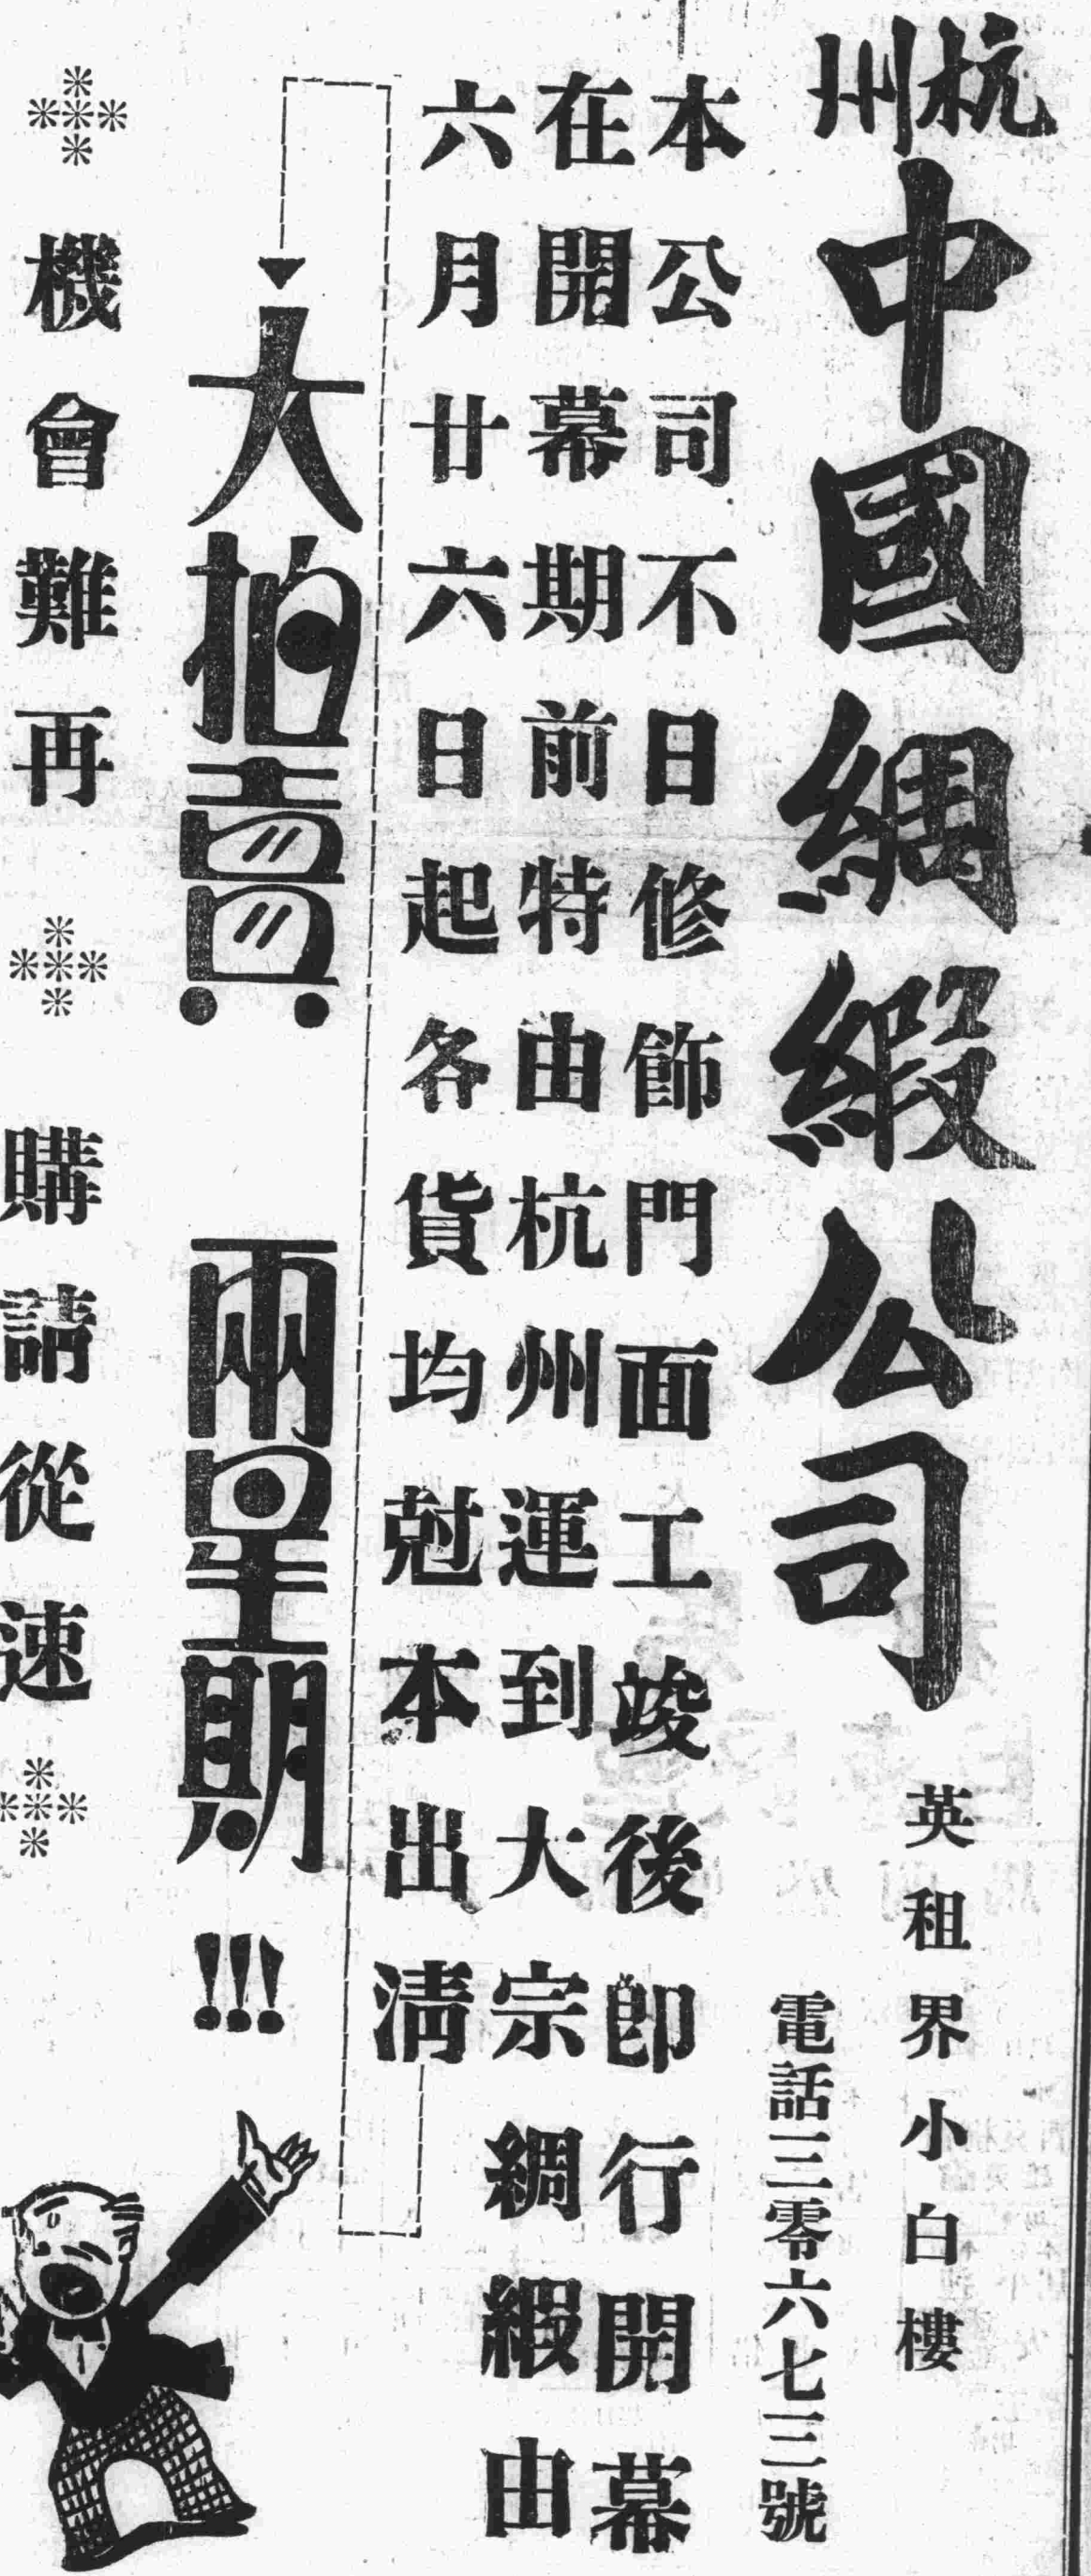 杭州
中國綢緞公司
英租界小白樓
電話三零六七三號
本公司不日修飾門面工竣後卽行開幕
在開幕期前特由杭州運到大宗綢緞由
六月廿六日起各貨均尅本出清
大拍賣 兩星期!!!
機會難再 購請從速